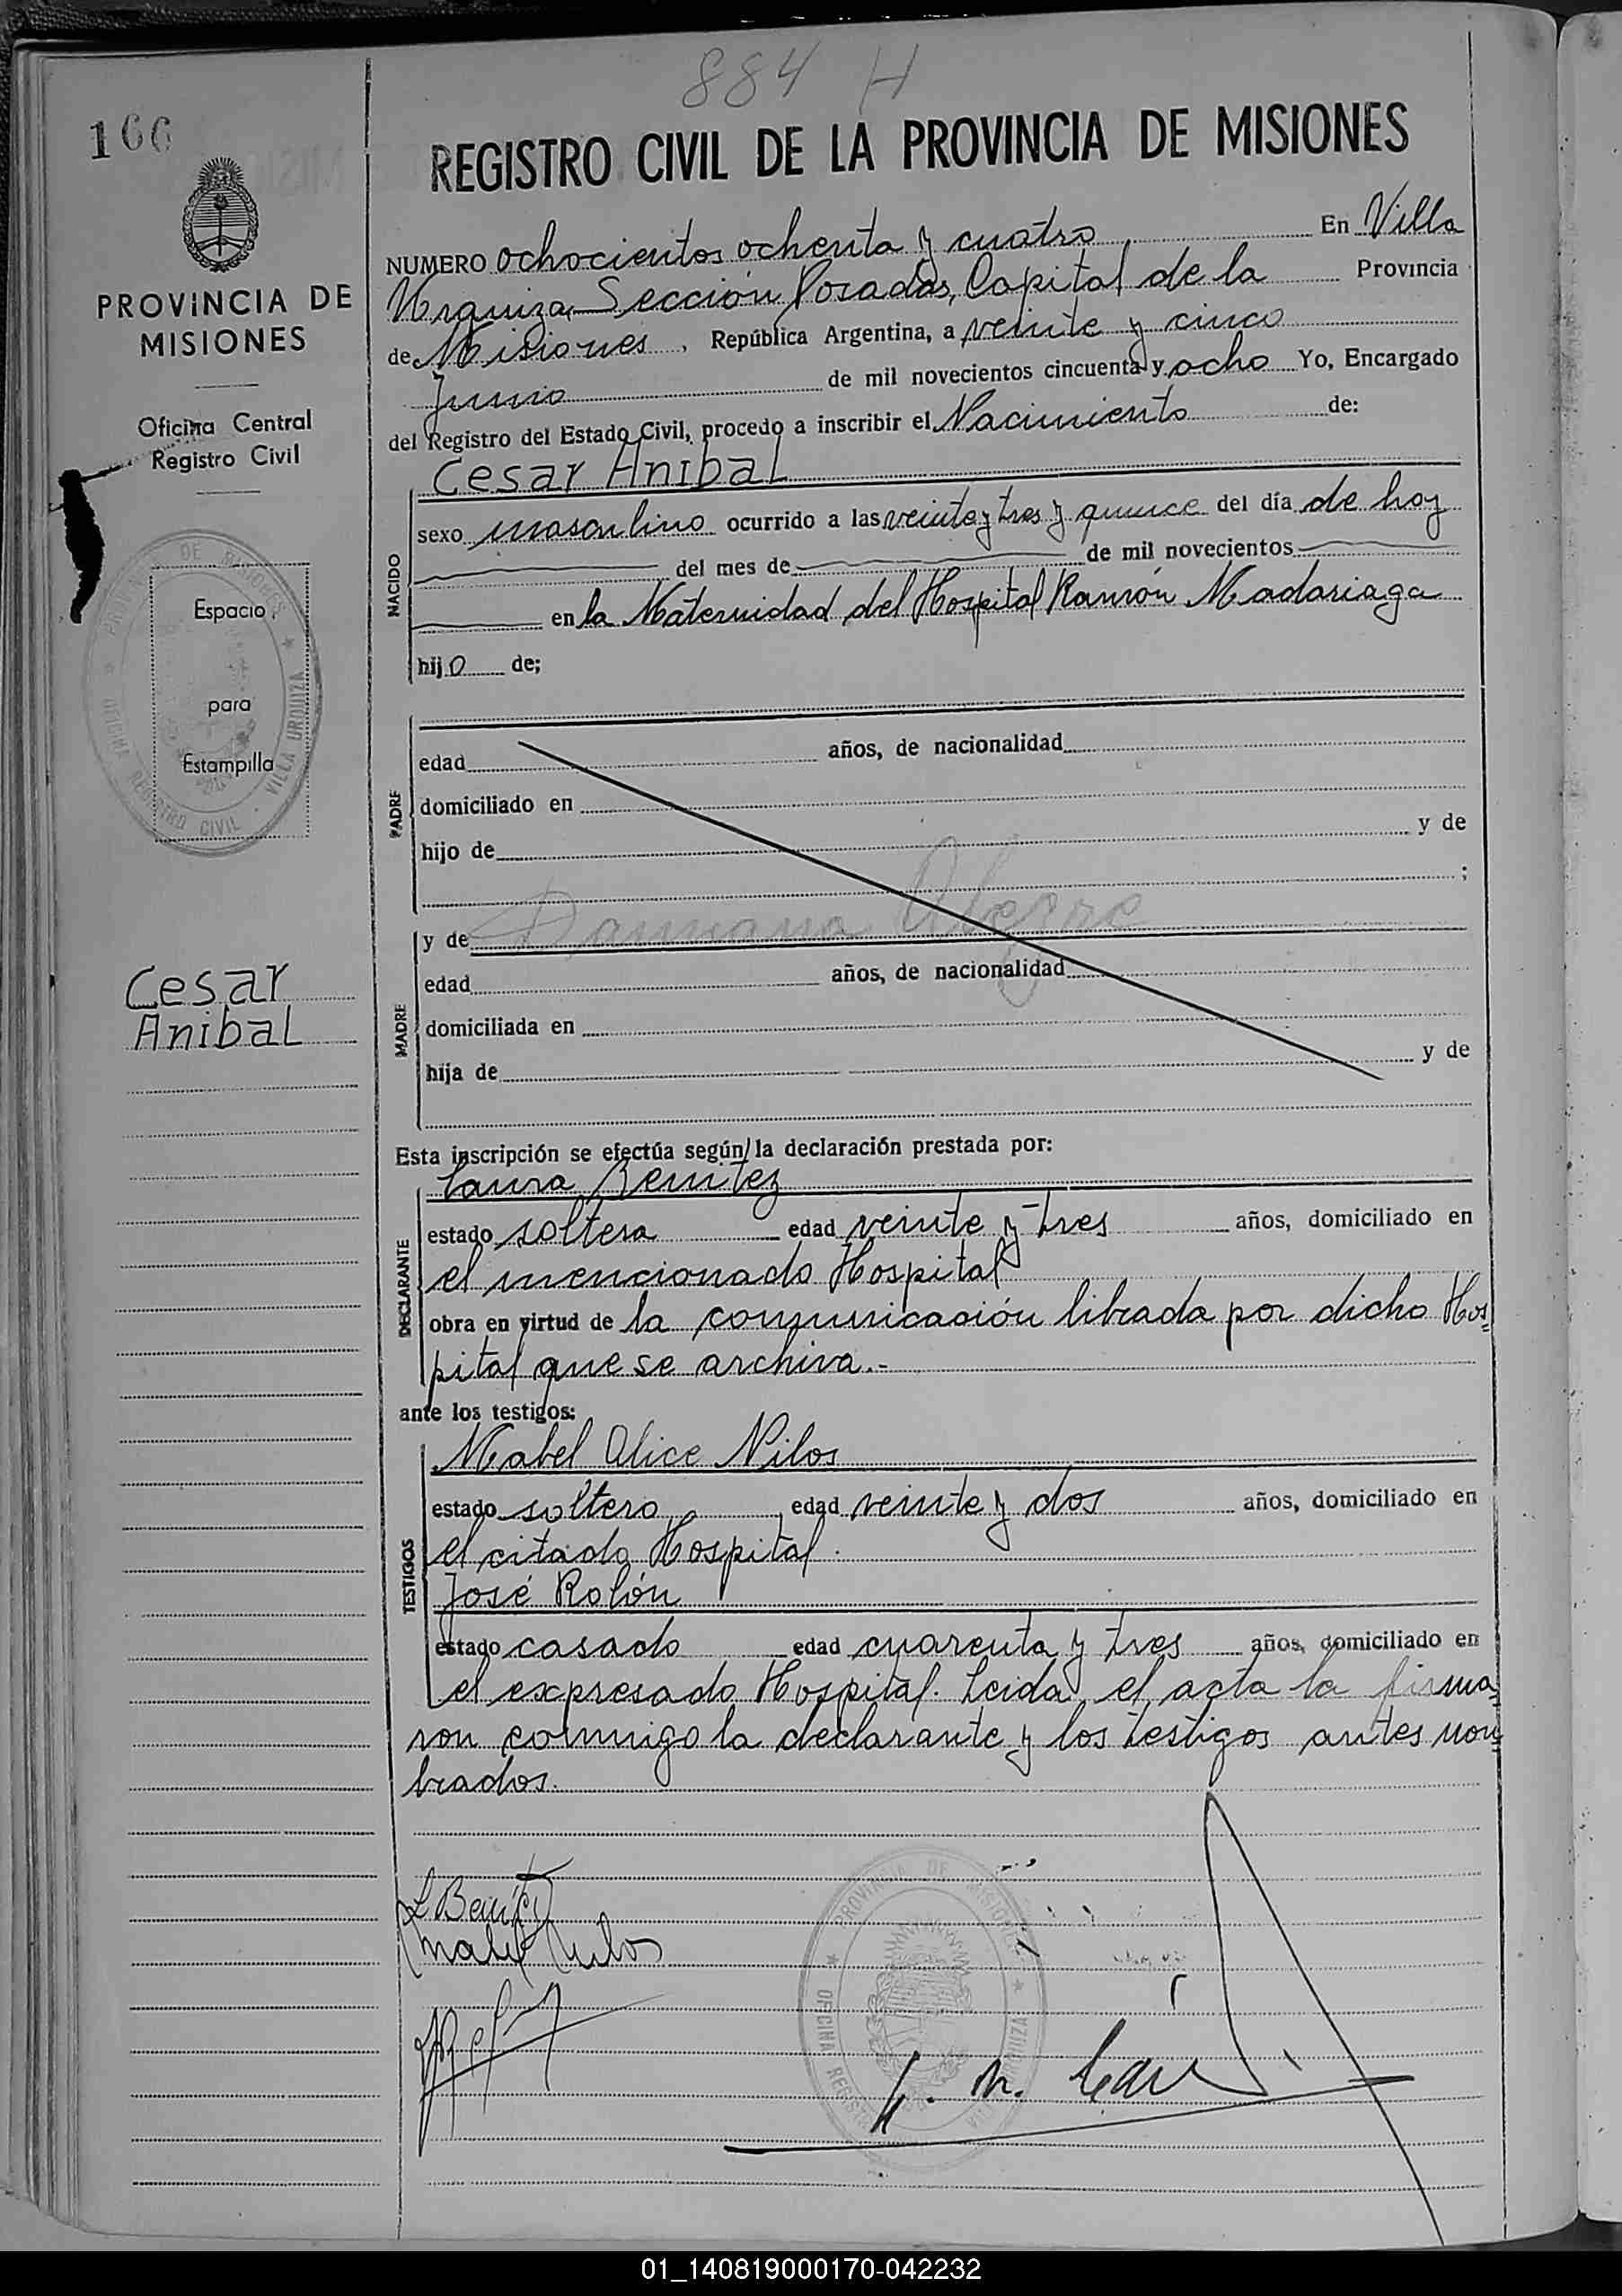 884 H
166
REGISTRO CIVIL DE LA PROVINCIA DE MISIONES
PROVINCIA DE
MISIONES
Oficina Central
Registro Civil
Espacio
para
Estampilla
PROVINCIA DE MISIONES
OFICINA REGISTRO CIVIL - VILLA URQUIZA
Cesar
Anibal
NUMERO ochocientos ochenta y cuatro En Villa
Urquiza, Sección Posadas, Capital de la Provincia
de Misiones, República Argentina, a veinte y cinco
Junio de mil novecientos cincuenta y ocho Yo, Encargado
del Registro del Estado Civil, procedo a inscribir el Nacimiento de:
Cesar Anibal
NACIDO
sexo masculino ocurrido a las veinte y tres y quince del día de hoy
del mes de de mil novecientos
en la Maternidad del Hospital Ramón Madariaga
hijo de;
PADRE
edad años, de nacionalidad
domiciliado en
hijo de y de
;
MADRE
y de Damiana Alegre
edad años, de nacionalidad
domiciliada en
hija de y de
Esta inscripción se efectúa según la declaración prestada por:
DECLARANTE
Laura Benitez
estado soltera edad veinte y tres años, domiciliado en
el mencionado Hospital
obra en virtud de la comunicación librada por dicho Hos=
pital que se archiva.-
ante los testigos:
TESTIGOS
Mabel Alice Nilos
estado soltero edad veinte y dos años, domiciliado en
el citado Hospital.
José Rolón
estado casado edad cuarenta y tres años, domiciliado en
el expresado Hospital. Leida el acta la firma=
ron conmigo la declarante y los testigos antes nom=
brados.
L Benitez
Mabel Nilos
PROVINCIA DE MISIONES
OFICINA REGISTRO
01_140819000170-042232